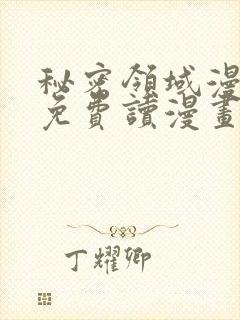 秘密領域漫
免費讀漫畫
丁耀卿